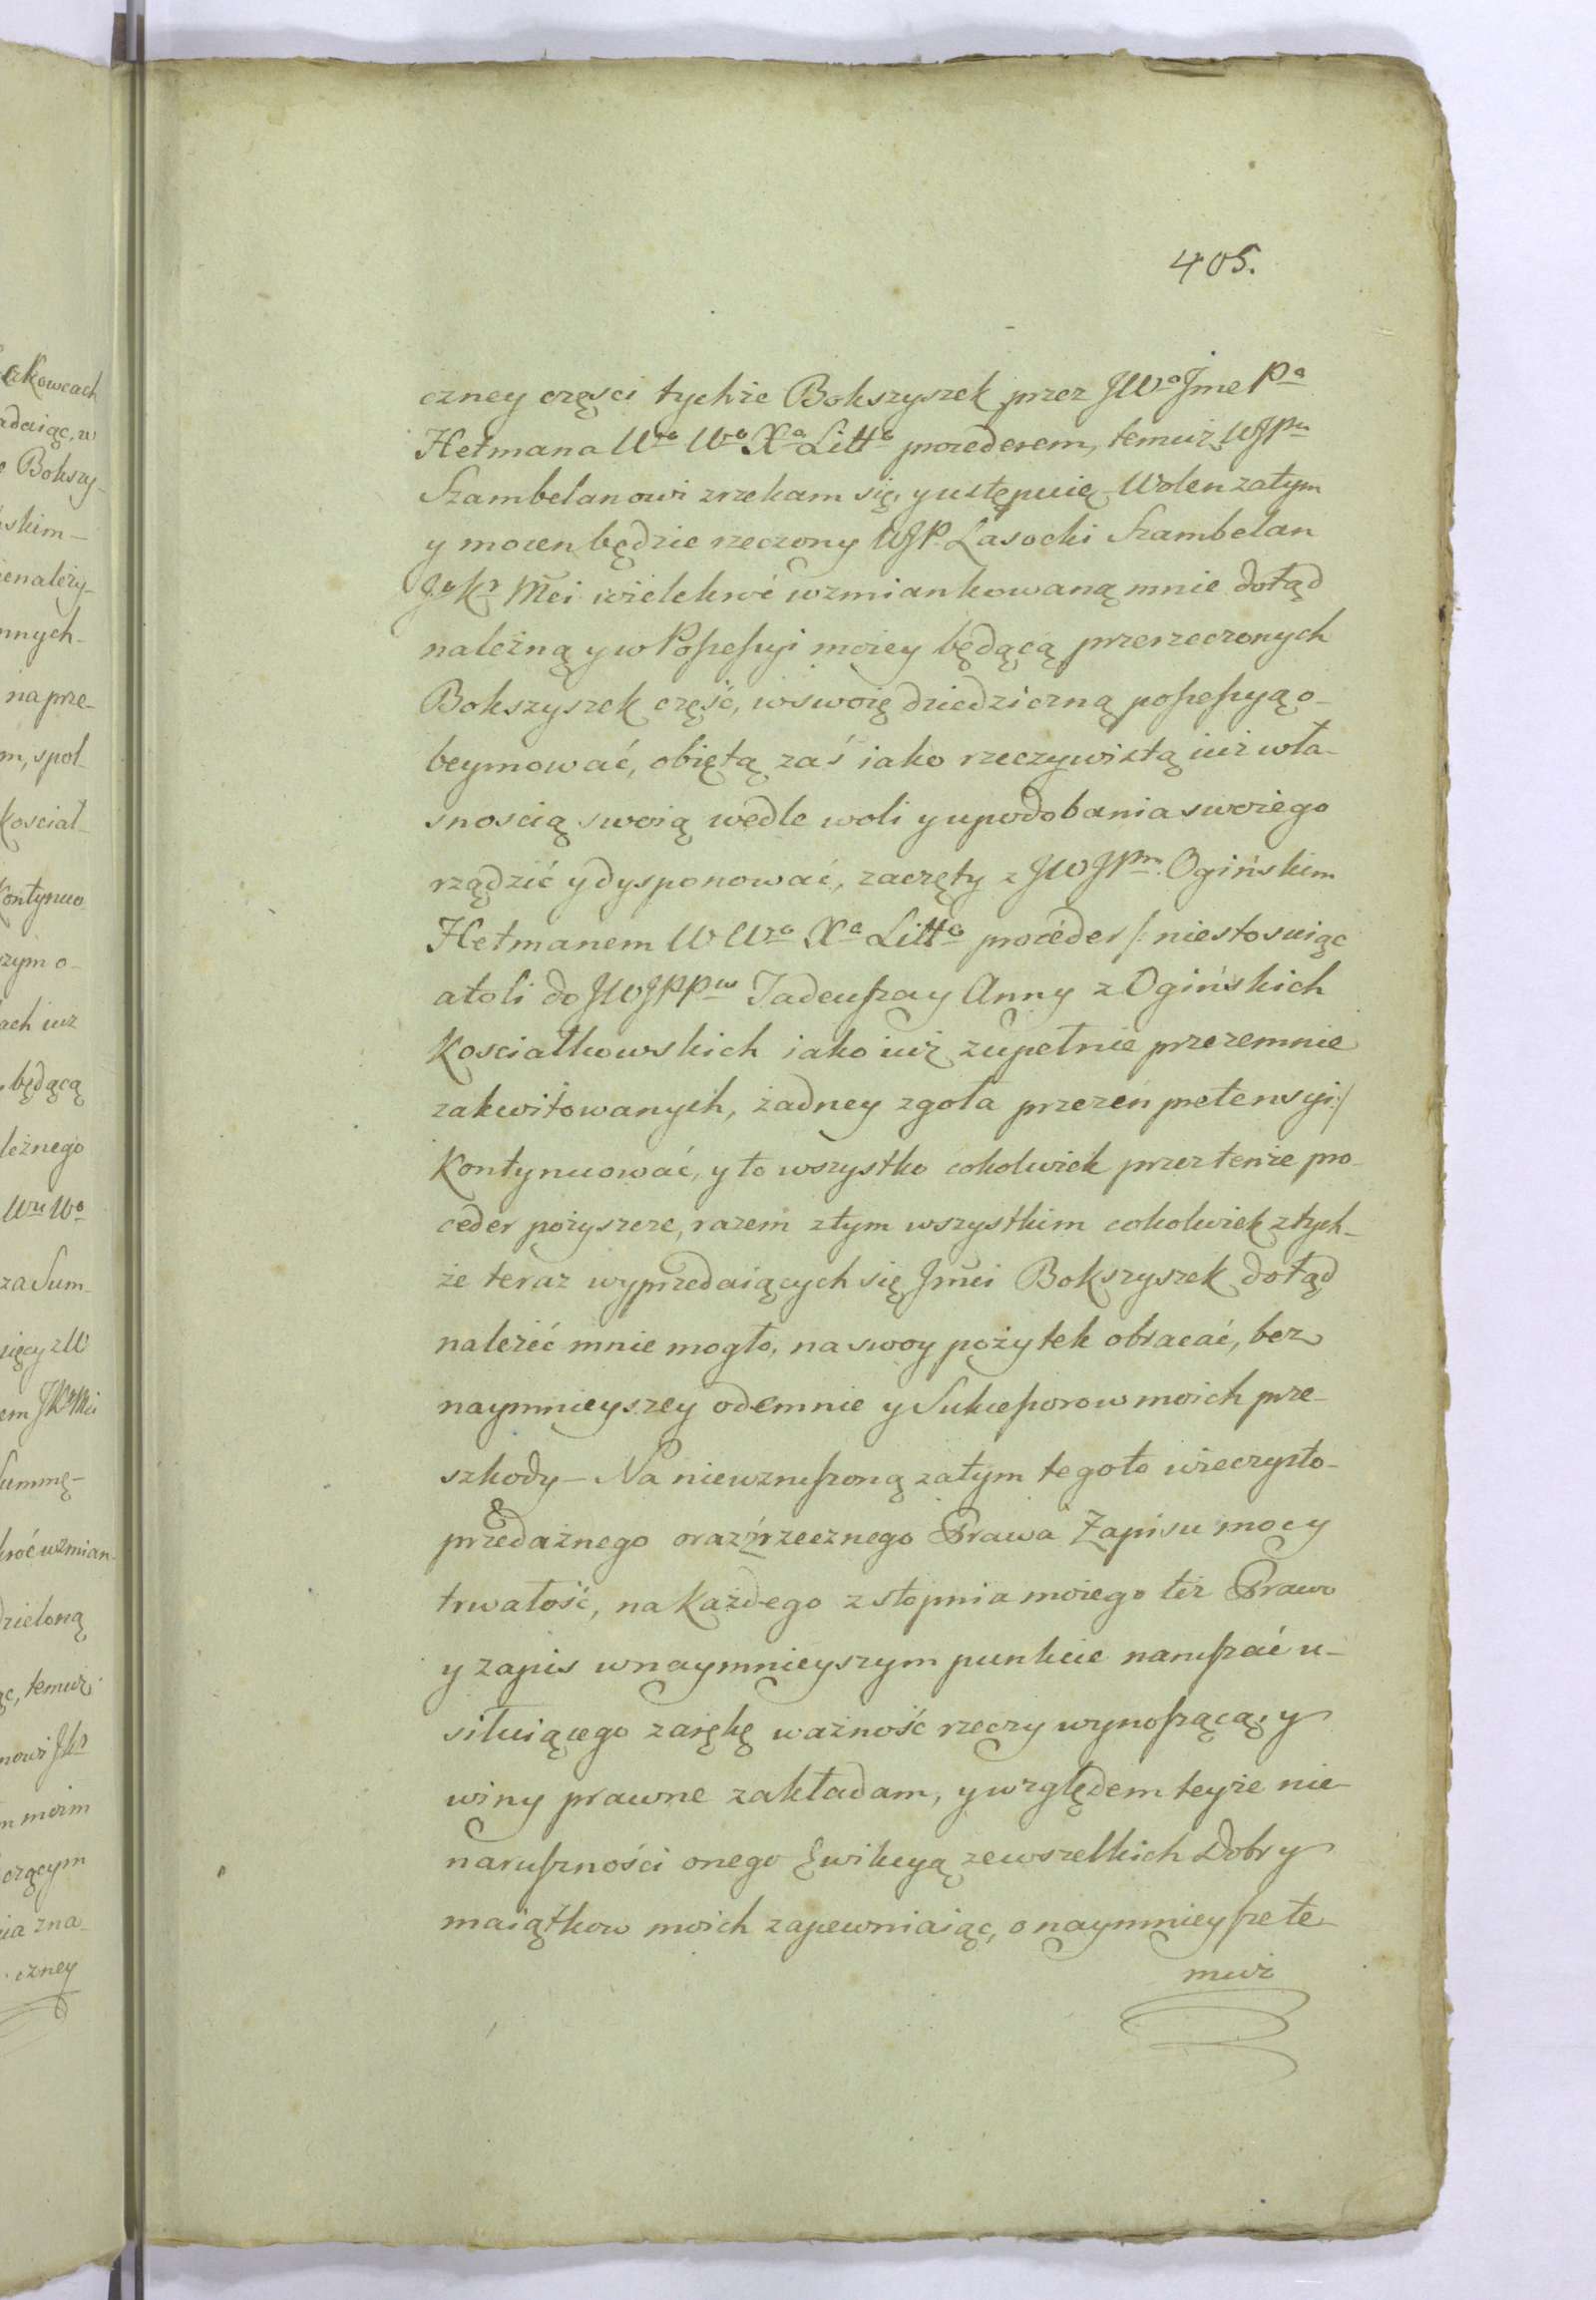 405.
czney częsci tychże Bokszyszek przez JWo Jme Pa
Hetmana Wgo Wo Xa Litto procederem, temuż WJPu
Szambelanowi zrzekam się, y ustępuię Wolen zatym
y mocen będzie rzeczony WJP. Lasocki Szambelan
Jo Kr Mci wielekroć wzmiankowaną mnie dotąd
należną y w Possessyi moiey będącą przerzeczonych
Bokszyszek część, w swoię dziedziczną possessyą o-
beymować, obiętą zaś iako rzeczywistą iuż wła-
snoscią swoią wedle woli y upodobania swoiego
rządzić y dysponować, zaczęty z JWJPm. Ogińskim
Hetmanem W Wgo Xa Litto proceder /: niestosuiąc
atoli do JWJPPw Tadeusza y Anny z Ogińskich
Kosciałkowskich iako iuż zupełnie przezemnie
zakwitowanych, żadney zgoła przezeń pretensyi :/
Kontynuować, y to wszystko cokolwiek przez tenże pro-
ceder pozyszcze, razem z tym wszystkim cokolwiek z tych-
że teraz wyprzedaiących się Jmci Bokszyszek dotąd
należéć mnie mogło, na swoy pożytek obracać, bez
naymnieyszey odemnie y Sukcessorow moich prze-
szkody – Na niewzruszoną zatym tegoto wieczysto-
przedażnego oraz zrzecznego Prawa Zapisu mocy
trwałość, na każdego z stopnia moiego też Prawo
y zapis w naymnieyszym punkcie naruszać u-
siłuiącego zarękę ważność rzeczy wynoszącą, y
winy prawne zakładam, y względem teyże nie-
naruszności onego Ewikcyą ze wszelkich Dobr y
maiątkow moich zapewniaiąc, o naymnieysze te-
muż